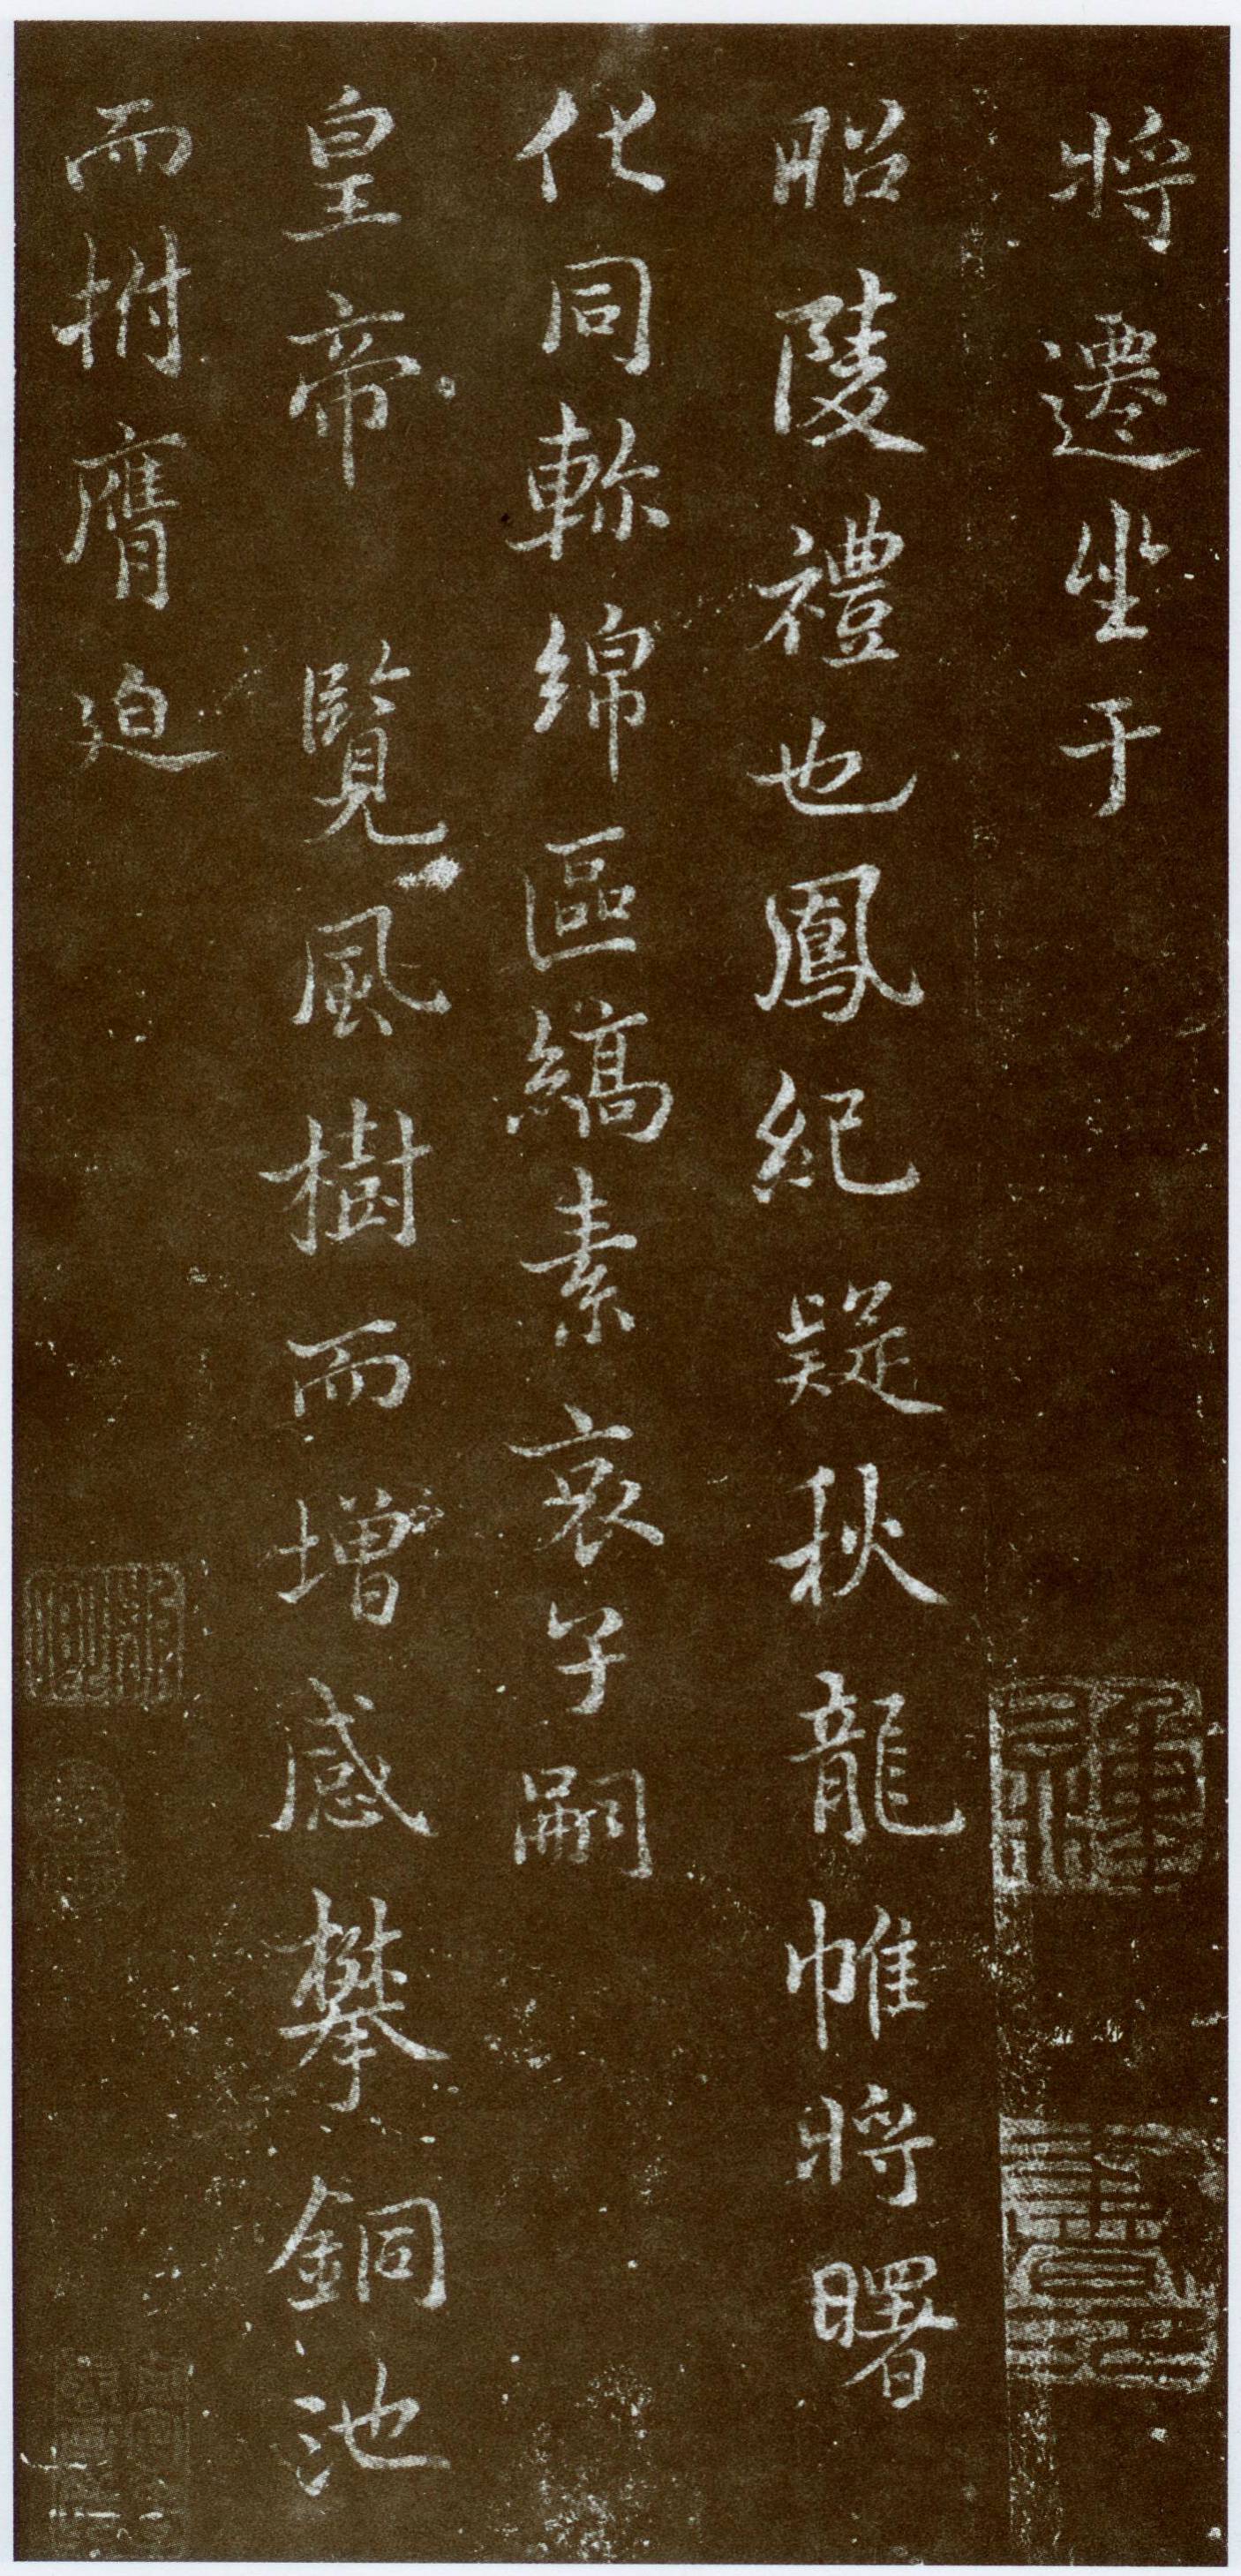 將遷坐于
昭陵禮也鳳紀疑秋龍帷將曙
化同軫綿區縞素哀子嗣
皇帝 覧風樹而增感攀銅池
而拊膺迫